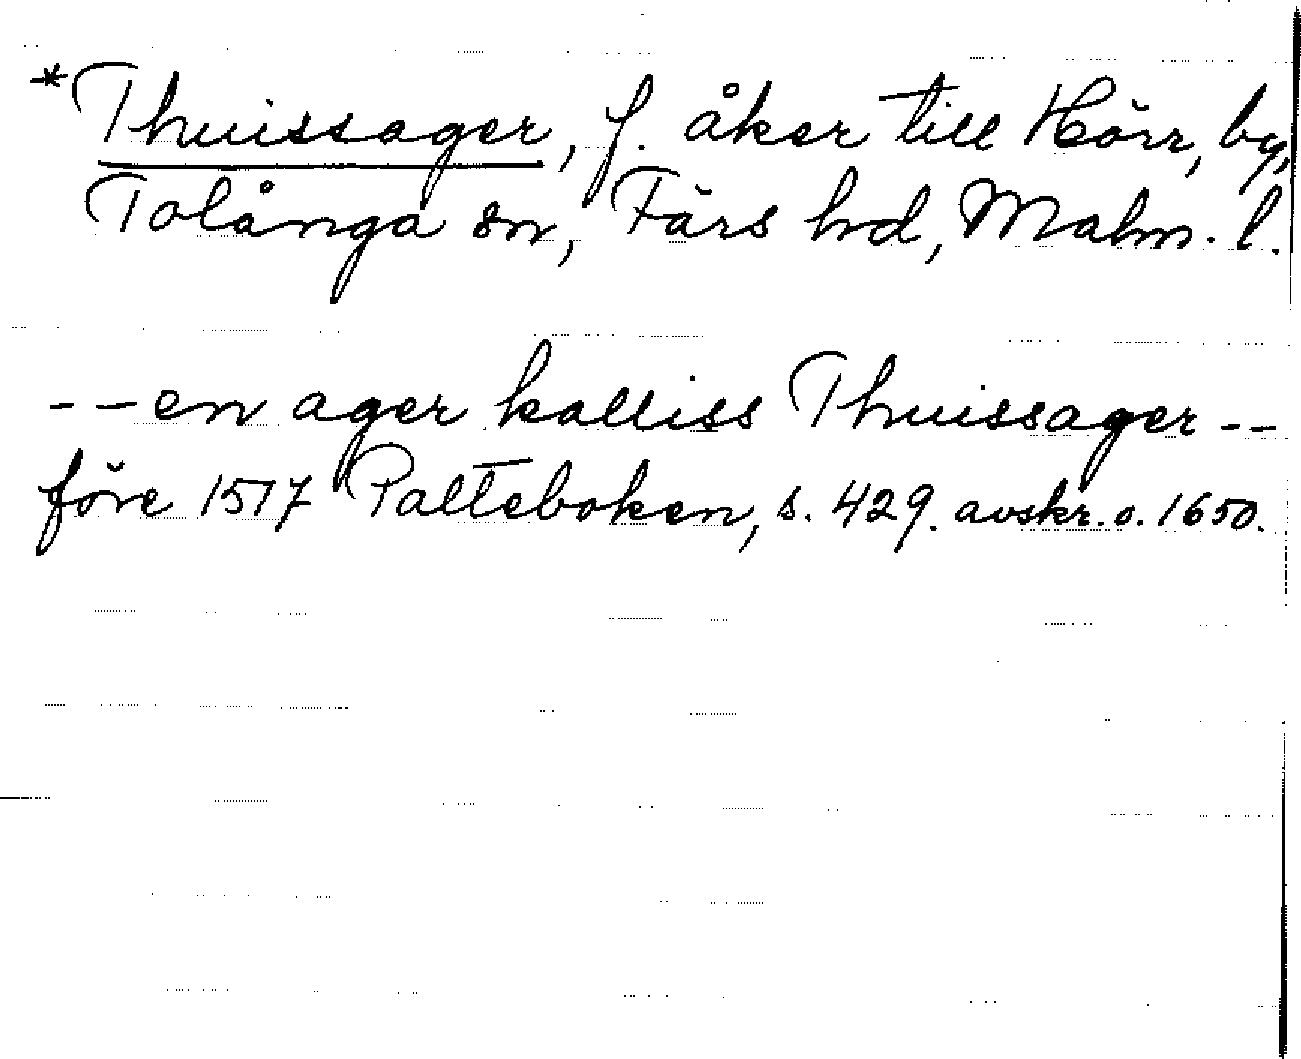 *Thuissager, f. åker till Hörr, by,
Tolånga sn, Färs hd, Malm. l.
--en ager kalliss Thuissager--
före 1517 Palteboken, s. 429. avskr. o. 1650.